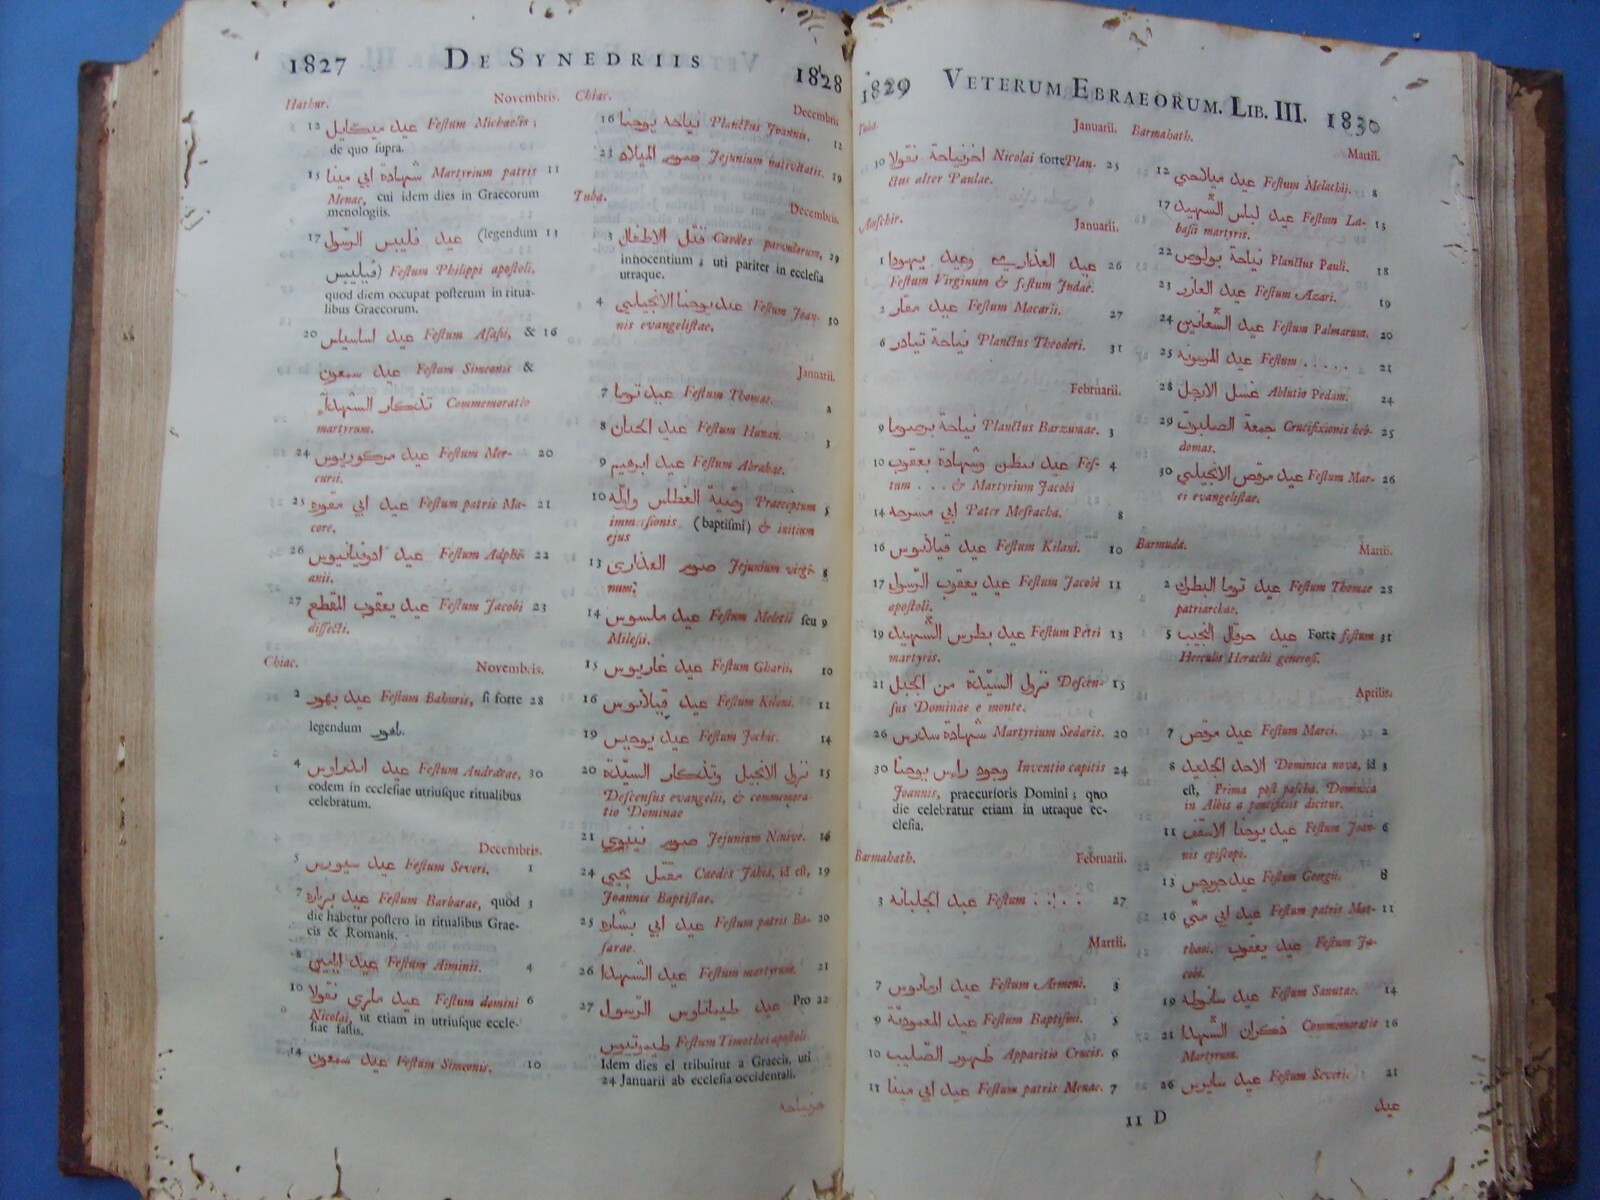 1827 DE SYNEDRIIS 1828
Hathur. Novembris.
12 عيد ميكايل Festum Michaelis;
de quo supra.
15 شهادة ابي مينا Martyrium patris 11
Menae, cui idem dies in Graecorum
menologiis.
17 عيد فليبس الرسول (legendum 13
فيليبس) Festum Philippi apostoli,
quod diem occupat posterum in ritua-
libus Graecorum.
20 عيد اساسياس Festum Asasii, & 16
عيد سمعون Festum Simeonis &
تذكار الشهدآء Commemoratio
martyrum.
24 عيد مركوريوس Festum Mer- 20
curii.
25 عيد ابي مقوره Festum patris Ma- 21
core.
26 عيد Festum Adphi- 22
anii.
27 عيد يعقوب المقطع Festum Jacobi 23
dissecti.
Chiac. Novembris.
2 عيد بهور Festum Bahuris, si forte 28
legendum باهور.
4 عيد اندراوس Festum Andraeae, 30
eodem in ecclesiae utriusque ritualibus
celebratum.
Decembris.
5 عيد سيورس Festum Severi. 1
7 عيد بربارة Festum Barbarae, quod 3
die habetur postero in ritualibus Grae-
cis & Romanis.
8 عيد Festum Aiminii. 4
10 عيد ماري نقولا Festum domini 6
Nicolai, ut etiam in utriusque eccle-
siae fastis.
14 عيد سمعون Festum Simeonis. 10
Chiac. Decembris
16 نياحة يوحنا Planctus Joannis. 12
23 صوم الميلاد Jejunium nativitatis. 19
Tuba. Decembris.
3 قتل الاطفال Caedes parvulorum, 29
innocentium; uti pariter in ecclesia
utraque.
4 عيد يوحنا الانجيلي Festum Joan- 30
nis evangelistae.
Januarii.
7 عيد توما Festum Thomae. 2
8 عيد الحنان Festum Hunan. 3
9 عيد ابرهيم Festum Abrahae.
10 وصية الغطاس واوله Praeceptum 5
immersionis (baptismi) & initium
ejus
13 صوم العذاري Jejunium virgi- 8
num;
14 عيد ملسوس Festum Meletii seu 9
Milesii.
15 عيد غاريوس Festum Gharii. 10
16 عيد قيلانوس Festum Kilani. 11
19 عيد يوحيس Festum Jochis. 14
20 نزول الانجيل وتذكار السيدة 15
Descensus evangelii, & commemora-
tio Dominae
21 صوم نينوي Jejunium Ninive. 16
24 مقتل يحيي Caedes Jahia, id est, 19
Joannis Baptistae.
25 عيد ابي بشاره Festum patris Ba- 20
sarae.
26 عيد الشهدا Festum martyrum. 21
27 عيد طيماتاوس الرسول Pro 22
طيموتيوس Festum Timothei apostoli.
Idem dies ei tribuitur a Graecis, uti
24 Januarii ab ecclesia occidentali.
1829 VETERUM EBRAEORUM. LIB. III. 1830
Tuba. Januarii.
30 نقولا Nicolai forte Plan- 25
ctus alter Paulae.
Amschir. Januarii.
1 عيد العذاري وعيد يهودا 26
Festum Virginum & festum Judae.
2 عيد مقار Festum Macarii. 27
6 نياحة تيادر Planctus Theodori. 31
Februarii.
9 نياحة برصوما Planctus Barzumae. 3
10 عيد سطن وشهادة يعقوب Fes- 4
tum . . . & Martyrium Jacobi
14 ابي مسرحه Pater Mesracha. 8
16 عيد قيلانوس Festum Kilani. 10
17 عيد يعقوب الرسول Festum Jacobi 11
apostoli.
19 عيد بطرس الشهيد Festum Petri 13
martyris.
21 نزول السيدة من الجبل Descen- 15
sus Dominae e monte.
26 شهادة سدرس Martyrium Sedaris. 20
30 وجود راس يوحنا Inventio capitis 24
Joannis, praecursoris Domini; quo
die celebratur etiam in utraque ec-
clesia.
Barmahath. Februarii.
3 عيد الجلبانه Festum . . . . 27
Martii.
7 عيد ارمانوس Festum Armeni. 3
9 عيد المعمودية Festum Baptismi. 5
10 ظهور الصليب Apparitio Crucis. 6
11 عيد ابي مينا Festum patris Menae. 7
11 D
Barmahath. Martii.
12 عيد ميلاخي Festum Melachii. 8
17 عيد لباس الشهيد Festum La- 13
basii martyris.
22 نياحة بولوص Planctus Pauli. 18
23 عيد العازر Festum Azari. 19
24 عيد الشعانين Festum Palmarum. 20
25 عيد Festum . . . . . 21
28 غسل الارجل Ablutio Pedum. 24
29 جمعة الصلبوت Crucifixionis heb- 25
domas.
30 عيد مرقص الانجيلي Festum Mar- 26
ci evangelistae.
Barmuda. Martii.
2 عيد توما البطرك Festum Thomae 28
patriarchae.
5 عيد حرقال النجيب Forte festum 31
Herculis Heraclii generosi.
Aprilis.
7 عيد مرقص Festum Marci. 2
8 الاحد الجديد Dominica nova, id 3
est, Prima post pascha. Dominica
in Albis a pontificiis dicitur.
11 عيد يوحنا الاسقف Festum Joan- 6
nis episcopi.
13 عيد جرجس Festum Georgii. 8
16 عيد ابي متي Festum patris Mat- 11
thaei. عيد يعقوب Festum Ja-
cobi.
19 عيد سانوطه Festum Sanutae. 14
21 ذكران الشهدا Commemoratio 16
Martyrum.
26 عيد سايرس Festum Severi. 21
عيد